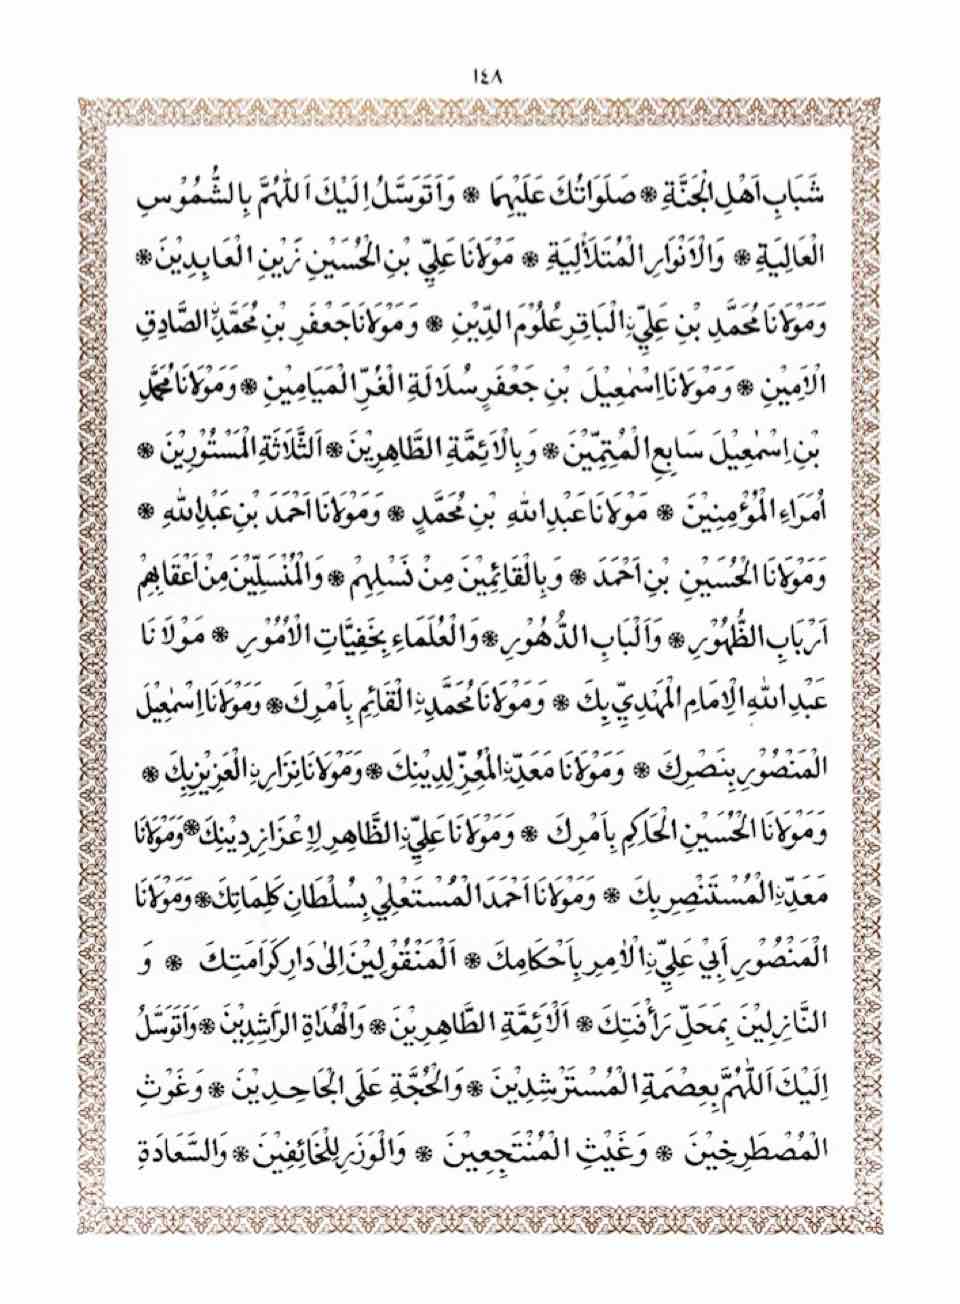 ١٤٨
شَبَابِ اَهْلِ الْجَنَّةِ ❋ صَلَوَاتُكَ عَلَيْهِمَا ❋ وَاَتَوَسَّلُ اِلَيْكَ اَللّٰهُمَّ بِالشُّمُوْسِ
الْعَالِيَةِ ❋ وَالْاَنْوَارِ الْمُتَلَأْلِيَةِ ❋ مَوْلَانَا عَلِيِّ بْنِ الْحُسَيْنِ زَيْنِ الْعَابِدِيْنَ ❋
وَمَوْلَانَا مُحَمَّدِ بْنِ عَلِيِّ ࣙالْبَاقِرِ عُلُوْمَ الدِّيْنِ ❋ وَمَوْلَانَا جَعْفَرِ بْنِ مُحَمَّدِ ࣙالصَّادِقِ
الْاَمِيْنِ ❋ وَمَوْلَانَا اِسْمٰعِيْلَ بْنِ جَعْفَرٍ سُلَالَةِ الْغُرِّ الْمَيَامِيْنِ ❋ وَمَوْلَانَا مُحَمَّدِ
بْنِ اِسْمٰعِيْلَ سَابِعِ الْمُتِمِّيْنَ ❋ وَبِالْاَئِمَّةِ الطَّاهِرِيْنَ ❋ اَلثَّلَاثَةِ الْمَسْتُوْرِيْنَ ❋
اُمَرَاءِ الْمُؤْمِنِيْنَ ❋ مَوْلَانَا عَبْدِ اللهِ بْنِ مُحَمَّدٍ ❋ وَمَوْلَانَا اَحْمَدَ بْنِ عَبْدِ اللهِ ❋
وَمَوْلَانَا الْحُسَيْنِ بْنِ اَحْمَدَ ❋ وَبِالْقَائِمِيْنَ مِنْ نَسْلِهِمْ ❋ وَالْمُنْسَلِّيْنَ مِنْ اَعْقَابِهِمْ
اَرْبَابِ الظُّهُوْرِ ❋ وَاَلْبَابِ الدُّهُوْرِ ❋ وَالْعُلَمَاءِ بِخَفِيَّاتِ الْاُمُوْرِ ❋ مَوْلَانَا
عَبْدِ اللهِ الْاِمَامِ الْمَهْدِيِّ بِكَ ❋ وَمَوْلَانَا مُحَمَّدِ ࣙالْقَائِمِ بِاَمْرِكَ ❋ وَمَوْلَانَا اِسْمٰعِيْلَ
الْمَنْصُوْرِ بِنَصْرِكَ ❋ وَمَوْلَانَا مَعَدِّ ࣙالْمُعِزِّ لِدِيْنِكَ ❋ وَمَوْلَانَا نِزَارِ ࣙالْعَزِيْزِ بِكَ ❋
وَمَوْلَانَا الْحُسَيْنِ الْحَاكِمِ بِاَمْرِكَ ❋ وَمَوْلَانَا عَلِيِّ ࣙالظَّاهِرِ لِاِعْزَازِ دِيْنِكَ ❋ وَمَوْلَانَا
مَعَدِّ ࣙالْمُسْتَنْصِرِ بِكَ ❋ وَمَوْلَانَا اَحْمَدَ الْمُسْتَعْلِيْ بِسُلْطَانِ كَلِمَاتِكَ ❋ وَمَوْلَانَا
الْمَنْصُوْرِ اَبِيْ عَلِيِّ ࣙالْاٰمِرِ بِاَحْكَامِكَ ❋ اَلْمَنْقُوْلِيْنَ اِلٰى دَارِ كَرَامَتِكَ ❋ وَ
النَّازِلِيْنَ بِمَحَلِّ رَأْفَتِكَ ❋ اَلْاَئِمَّةِ الطَّاهِرِيْنَ ❋ وَالْهُدَاةِ الرَّاشِدِيْنَ ❋ وَاَتَوَسَّلُ
اِلَيْكَ اَللّٰهُمَّ بِعِصْمَةِ الْمُسْتَرْشِدِيْنَ ❋ وَالْحُجَّةِ عَلَى الْجَاحِدِيْنَ ❋ وَغَوْثِ
الْمُصْطَرِخِيْنَ ❋ وَغَيْثِ الْمُنْتَجِعِيْنَ ❋ وَالْوَزَرِ لِلْخَائِفِيْنَ ❋ وَالسَّعَادَةِ